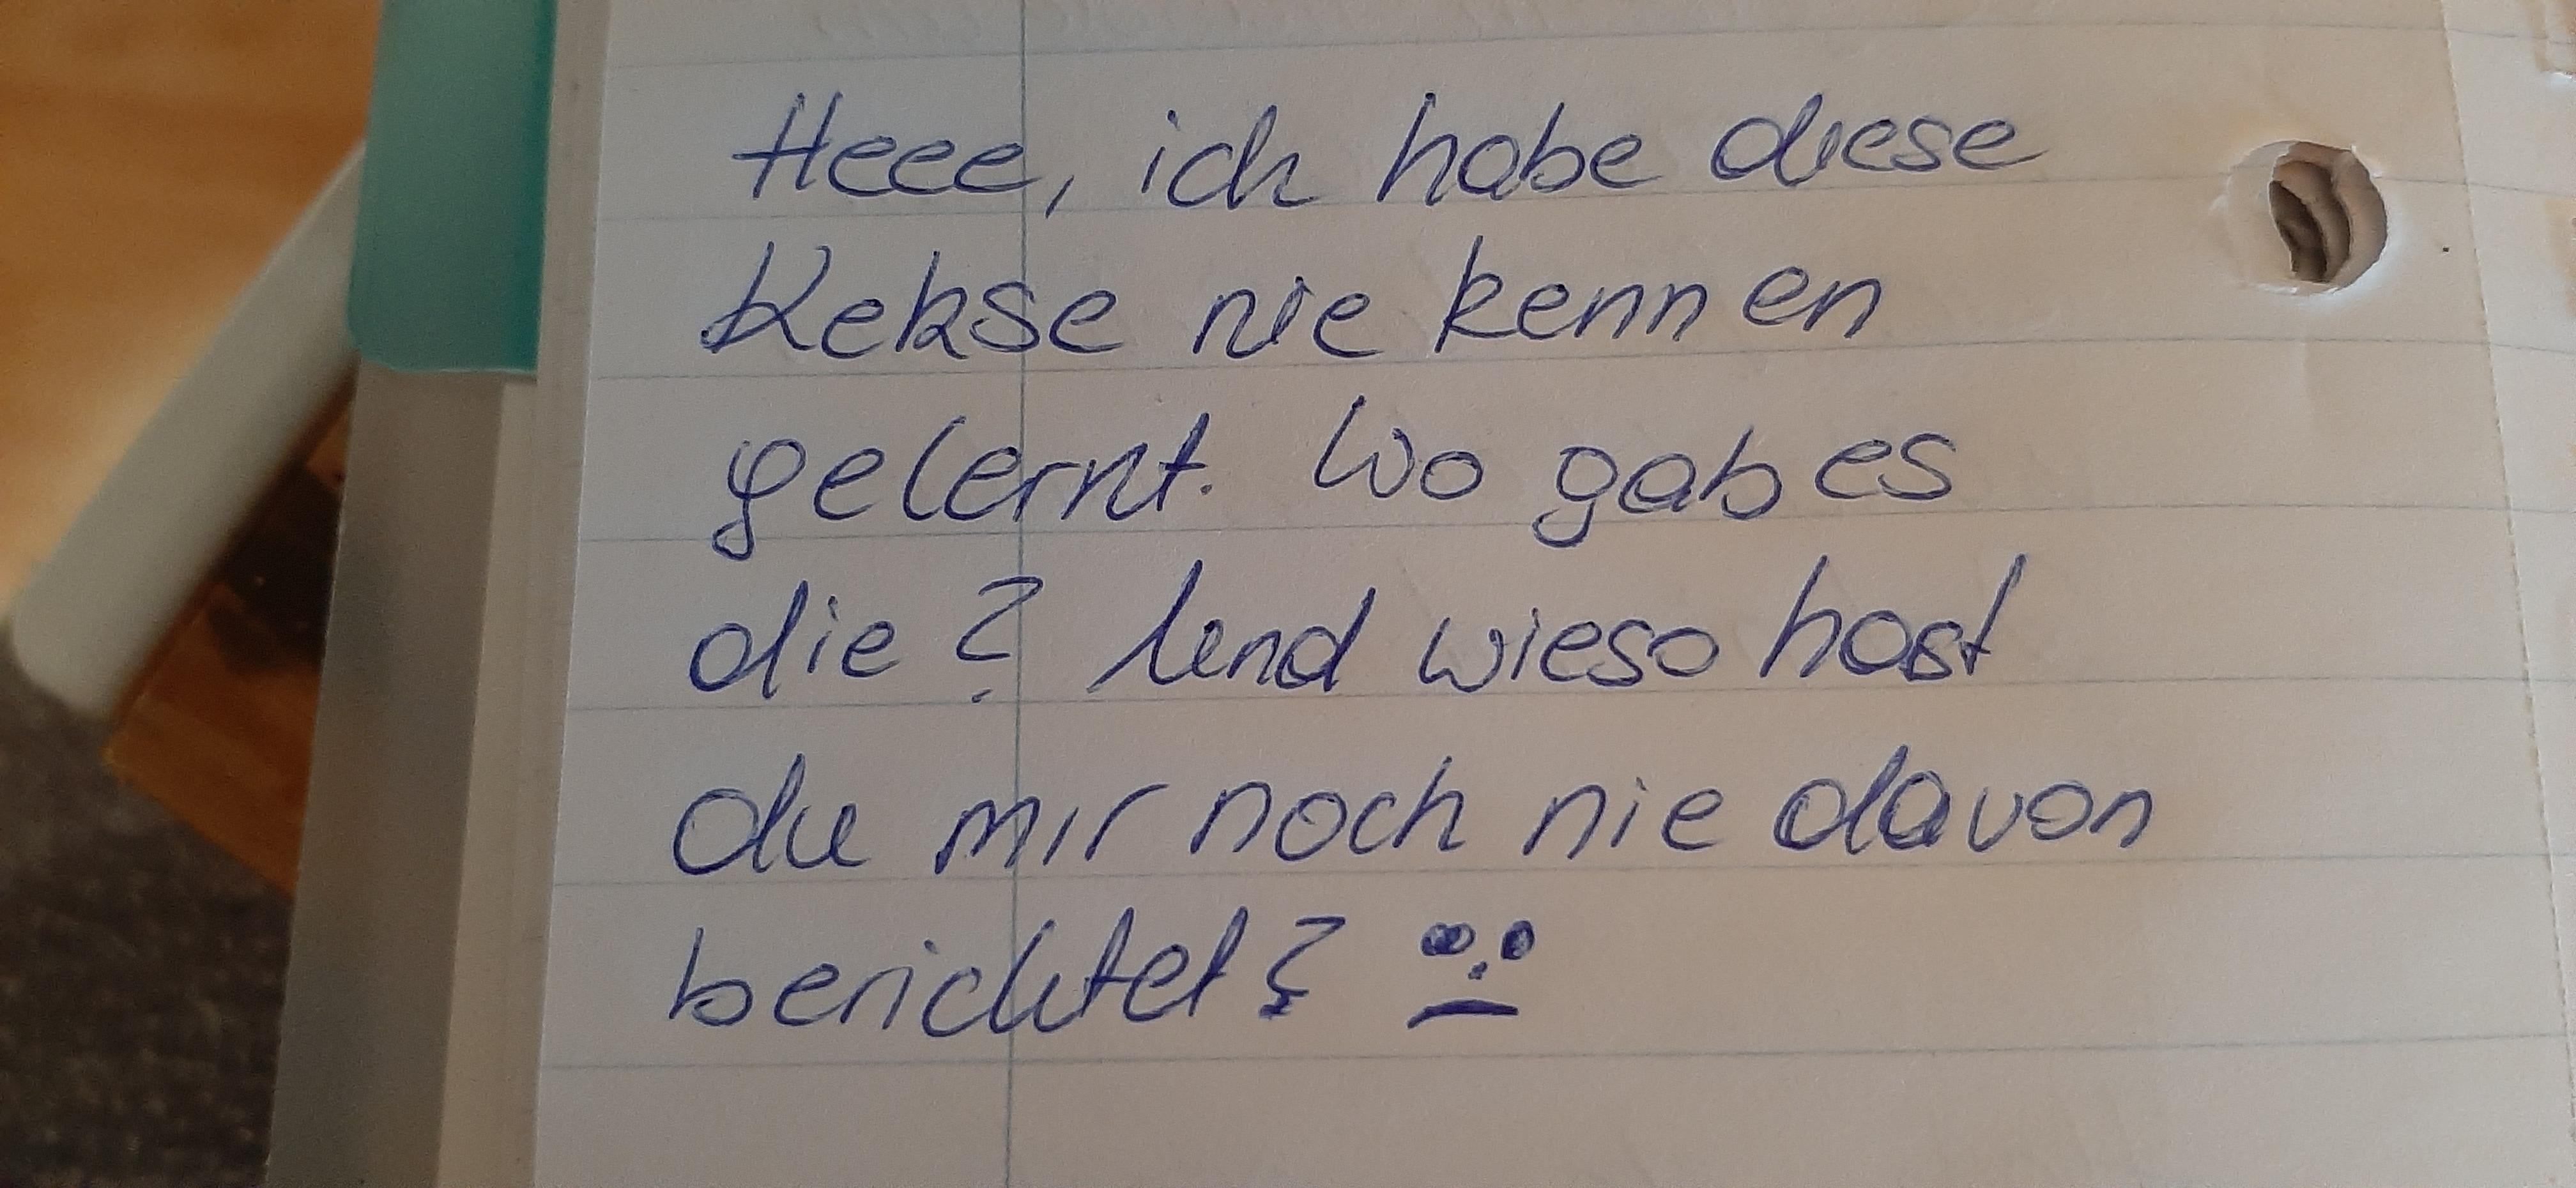 Heee, ich habe diese
Kekse nie kennen
gelernt. Wo gab es
die? Und wieso hast
du mir noch nie davon
berichtet?